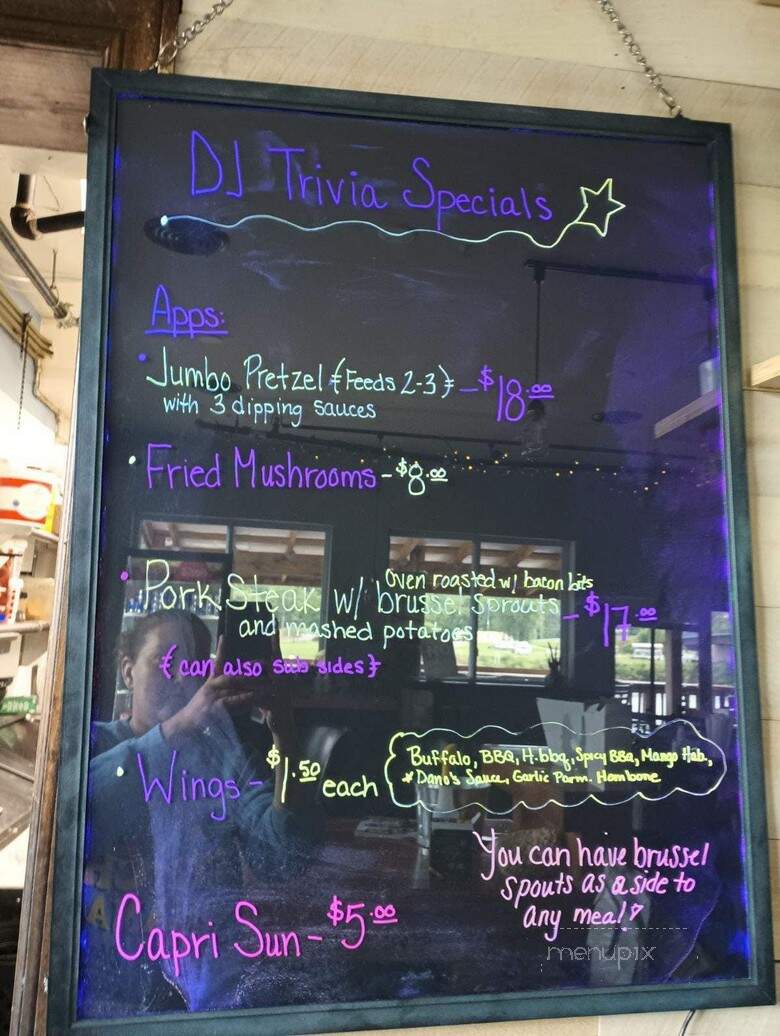 DJ Trivia Specials
Apps:
Jumbo Pretzel {Feeds 2-3} - $18.00
with 3 dipping sauces
Fried Mushrooms - $8.00
Oven roasted w/ bacon bits
Pork Steak w/ brussel sprouts - $17.00
and mashed potatoes
{can also sub sides}
Wings - $1.50 each
Buffalo, BBQ, H.bbq, Spicy BBQ, Mango Hab.,
* Dano's Sauce, Garlic Parm. Hambone
You can have brussel
spouts as a side to
any meal!
Capri Sun - $5.00
menupix